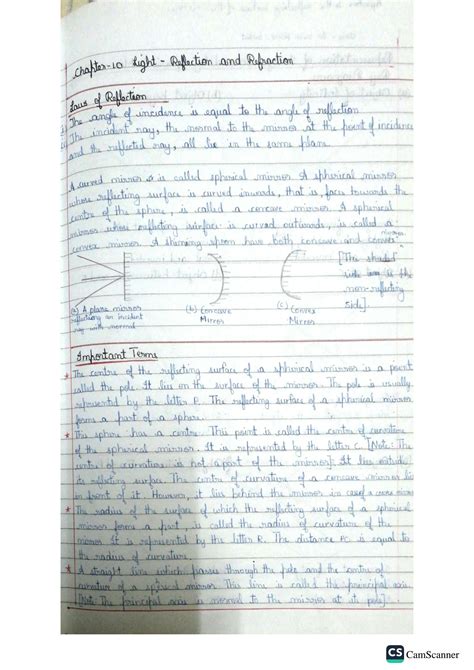 Chapter-10 Light - Reflection and Refraction
Laws of Reflection
The angle of incidence is equal to the angle of reflection
The incident ray, the normal to the mirror at the point of incidence
and the reflected ray, all lie in the same plane.
A curved mirror is called spherical mirror. A spherical mirror
whose reflecting surface is curved inwards, that is, faces towards the
centre of the sphere, is called a concave mirror. A spherical
mirror whose reflecting surface is curved outwards, is called a
convex mirror. A shinning spoon have both concave and convex
mirror.
[The shaded
side is the
non-reflecting
side]
(a) A plane mirror
reflecting an incident
ray with normal
(b) Concave
Mirror
(c) Convex
Mirror
Important Terms
* The centre of the reflecting surface of a spherical mirror is a point
called the pole. It lies on the surface of the mirror. The pole is usually
represented by the letter P. The reflecting surface of a spherical mirror
forms a part of a sphere.
* This sphere has a centre. This point is called the centre of curvature
of the spherical mirror. It is represented by the letter C. [Note: The
centre of curvature is not a part of the mirror]. It lies outside
its reflecting surface. The centre of curvature of a concave mirror lies
in front of it. However, it lies behind the mirror in case of a convex mirror
* The radius of the surface of which the reflecting surface of a spherical
mirror forms a part, is called the radius of curvature of the
mirror. It is represented by the letter R. The distance PC is equal to
the radius of curvature.
* A straight line which passes through the pole and the centre of
curvature of a spherical mirror. This line is called the principal axis.
[Note: The principal axis is normal to the mirror at its pole].
CS CamScanner